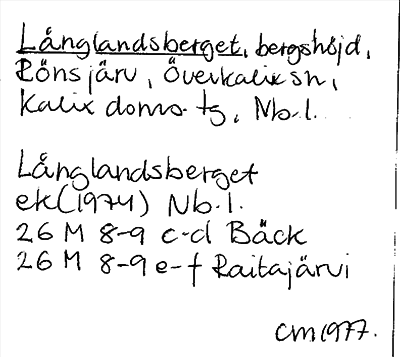 Långlandsberget, bergshöjd,
Rönsjärv, Överkalix sn,
Kalix doms. tg, Nb. l.
Långlandsberget
ek (1974) Nb. l.
26 M 8-9 c-d Bäck
26 M 8-9 e-f Raitajärvi
CM 1977.